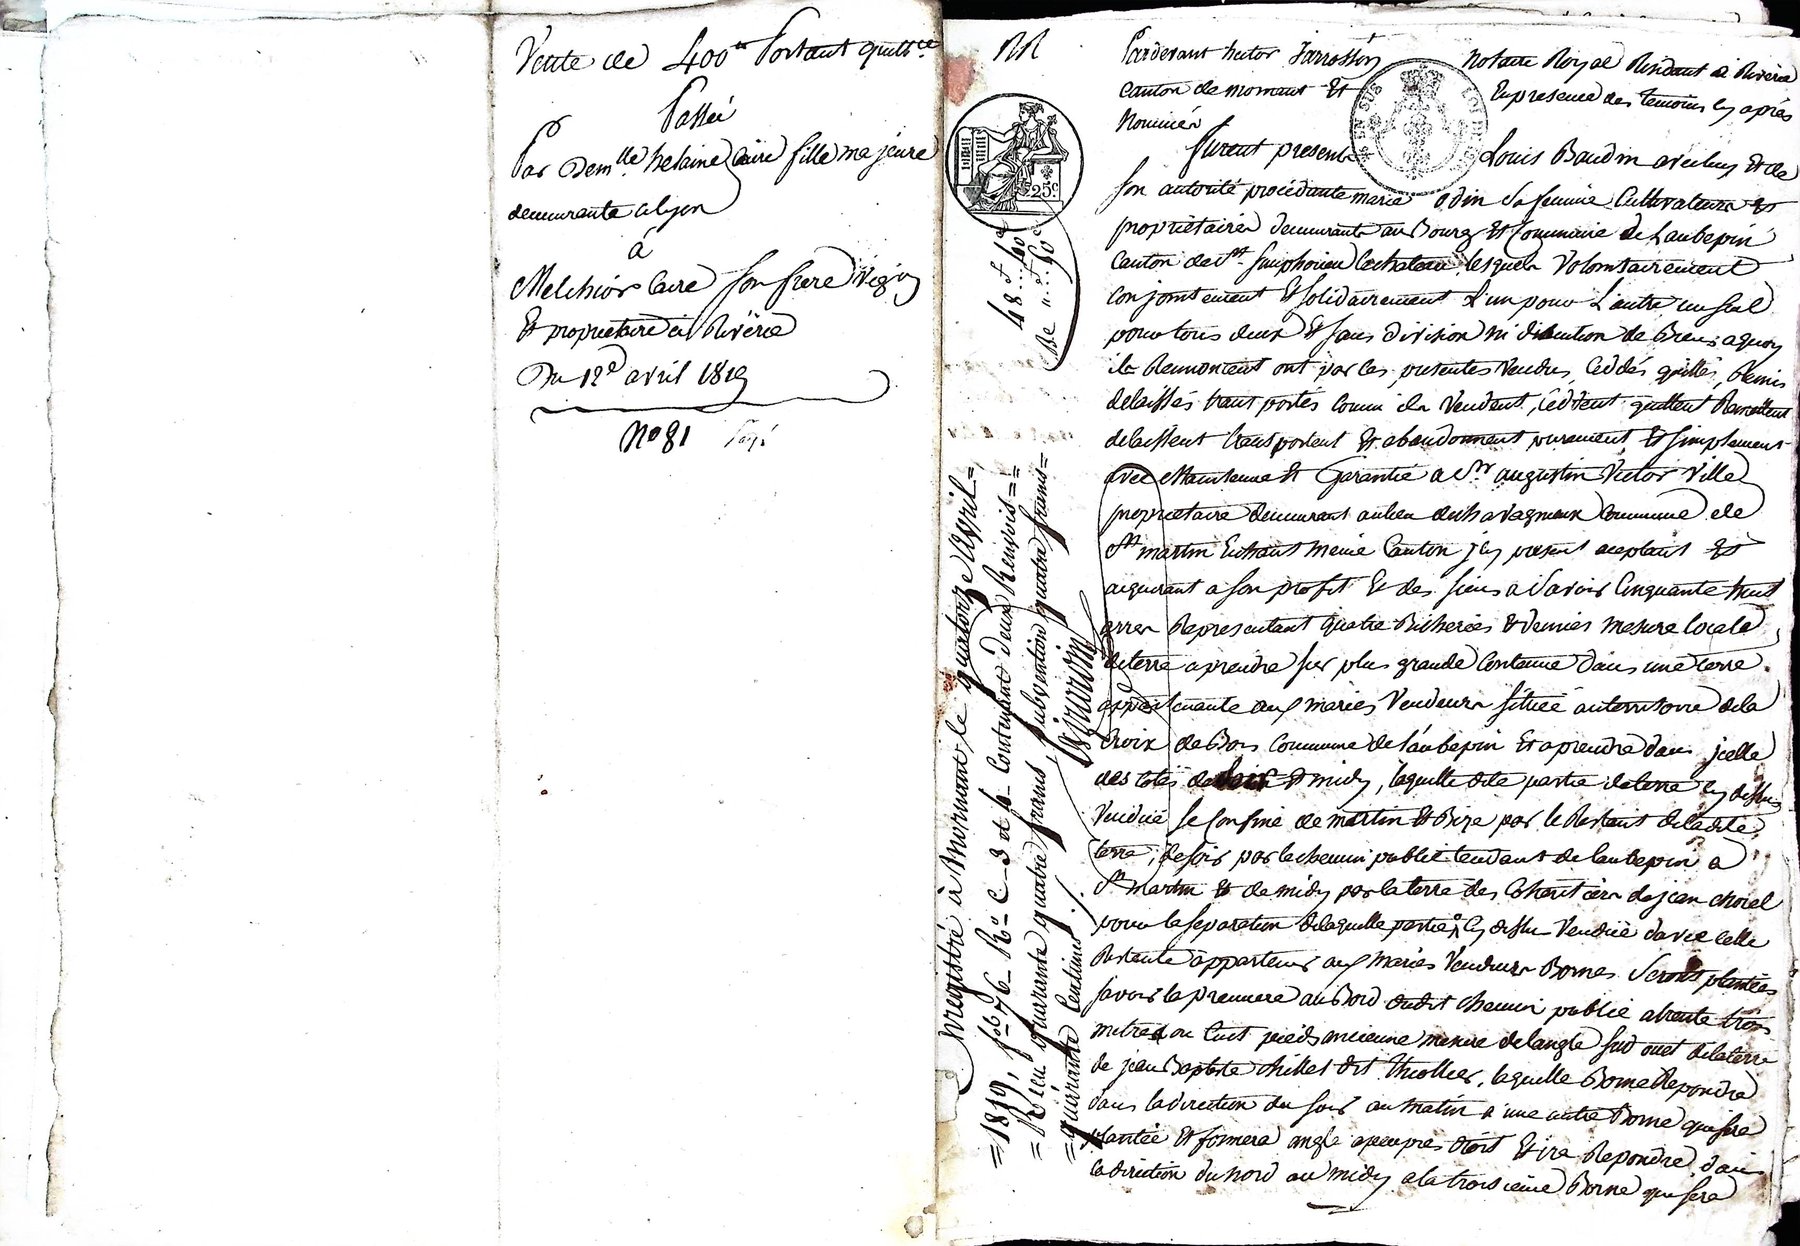 Vente de 400 tt portant quitt.ce
Passée
Par Dem.lle helaine Caire fille majeure
demeurante a lyon
à
Melchior Caire son frere vigon
Et proprietaire à Rivérie
Du 12e avril 1819
No 81 payé
RR
25c
48 f 40 c
Enregistré à Mornant le quatorze Avril =
= 1819, f.o 76 R.o C. 3 et s. Contenant deux Renvois ==
= Reçu quarante quatre francs, subvention quatre francs =
= quarante Centimes ./.
Pardevant hector Jarrosson Notaire Royal Residant à Riverie
canton de mornant Et En presence des temoins cy après
Nommés
furent presents Louis Baudin avec luy Et de
son autorité procédante marie odin sa femme Cultivateurs Et
propriétaires demeurants au Bourg Et Commune de Laubepin
Canton de St. simphorien le chateau, lesquels volontairement
conjointement Et solidairement L'un pour L'autre un seul
pour tous deux Et sans division ni discution de Biens a quoy
ils Renoncent ont par ces presentes vendus, Ceddés quittés, Remis
delaissés transportés comme ils vendent, Ceddent quittent Remettent
delaissent transportent Et abandonnent purement Et simplement
avec Maintenue Et Garantie a Sr. augustin Victor Ville
proprietaire demeurant au lieu de chavagneux Commune de
St. martin En haut meme Canton jcy present aceptant Et
aquerant a son profit Et des siens a savoir Cinquante huit
arres Representant quatre Bicherées Et demies mesure locale
de terre a prendre sur plus grande Contenue dans une terre
appartenante aux mariés Vendeurs sittuée au territoire de la
Croix de Bois Commune de Laubepin Et a prendre dans jcelle
des cotés de soir Et midy, laquelle dite partie de terre cy dessus
Vendue se Confine de matin Et Bize par le Restant de ladite
terre, de soir par le chemin public tendant de laubepin a
St. Martin Et de midy par la terre des Cohéritiers de jean chorel
pour la separation de laquelle partie cy dessus Vendue davec celle
Restante appartenir aux mariés Vendeurs Bornes seront plantées
savoir la premiere au Bord dudit chemin public a trente trois
metres ou Cent pieds ancienne mesure de langle sud ouet de la terre
de jean Baptiste chillet dit thiollier, laquelle Borne Repondra
dans la direction du soir au matin a une autre Borne qui sera
plantée Et formera angle apeupres droit Et ira Repondre dans
la direction du Nord au midy a la troisieme Borne qui sera